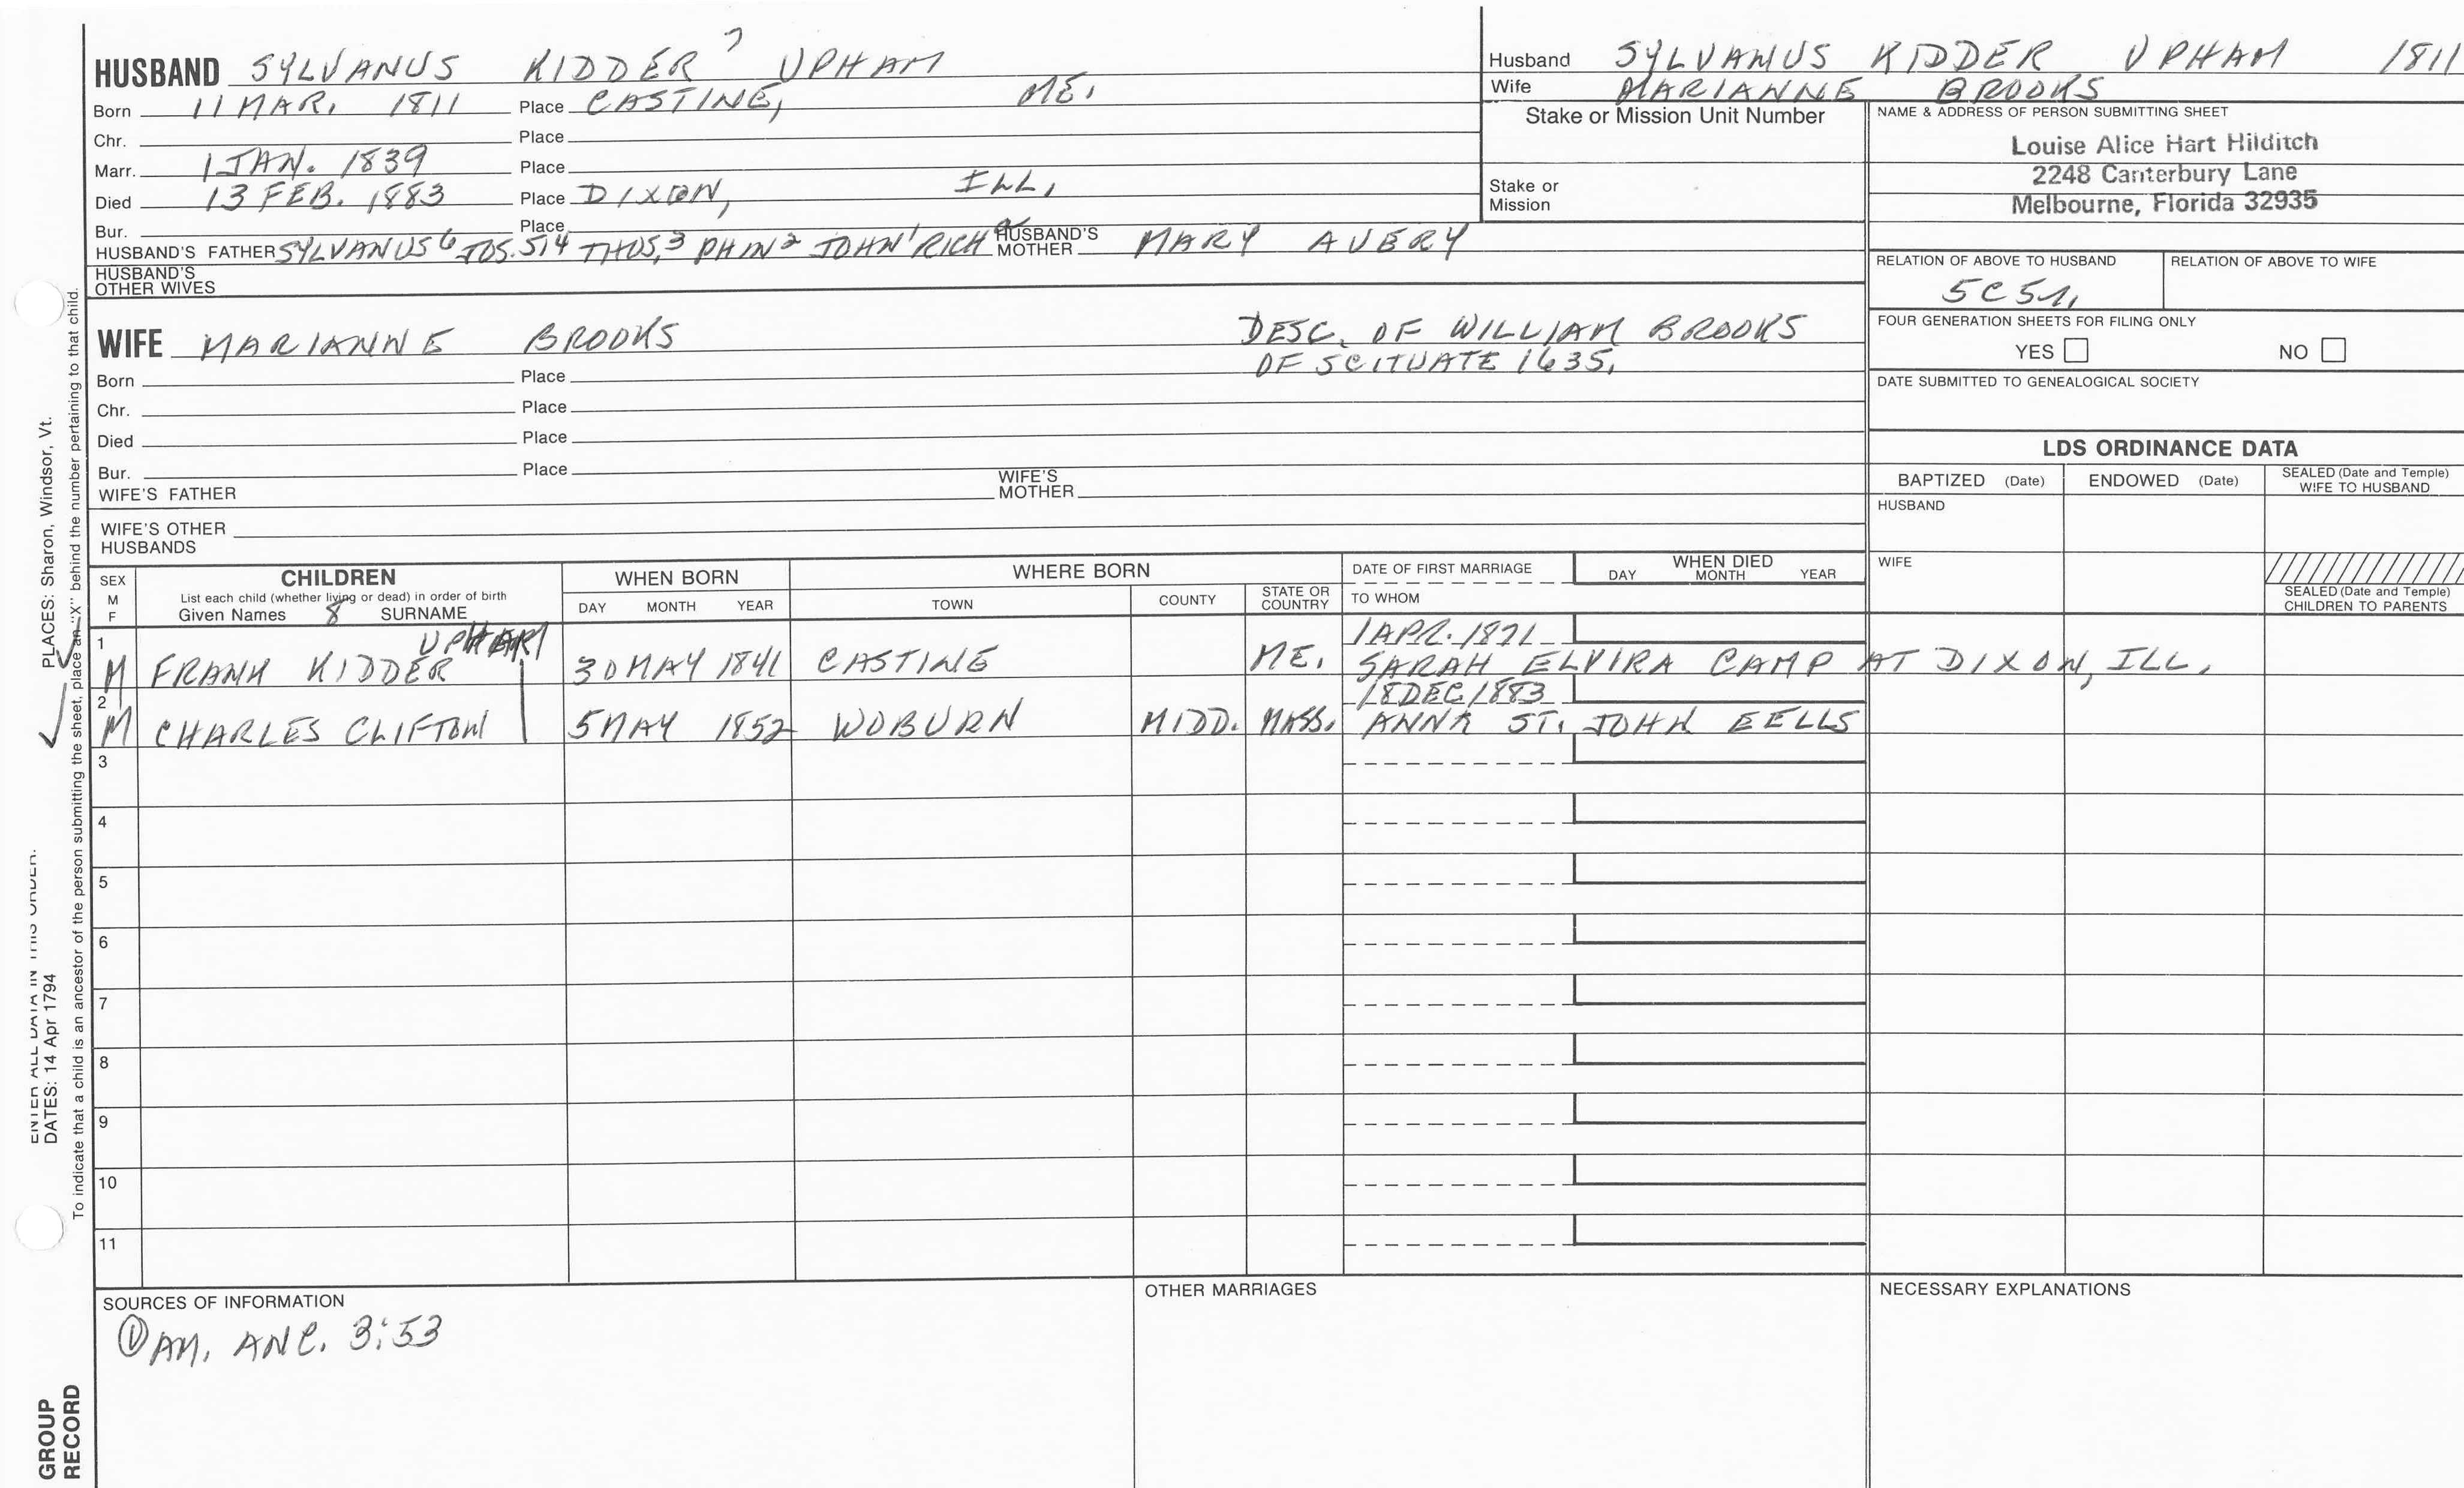 HUSBAND SYLVANUS KIDDER 7 UPHAM
Born 11 MAR. 1811 Place CASTINE, ME.
Chr. Place
Marr. 1 JAN. 1839 Place
Died 13 FEB. 1883 Place DIXON, ILL.
Bur. Place
HUSBAND'S FATHER SYLVANUS 6 JOS. 5, 4 THOS, 3 PHIN 2 JOHN 1 RICH a HUSBAND'S MOTHER MARY AVERY
HUSBAND'S OTHER WIVES
Husband SYLVANUS KIDDER UPHAM 1811
Wife MARIANNE BROOKS
Stake or Mission Unit Number
Stake or Mission
NAME & ADDRESS OF PERSON SUBMITTING SHEET
Louise Alice Hart Hilditch
2248 Canterbury Lane
Melbourne, Florida 32935
RELATION OF ABOVE TO HUSBAND
RELATION OF ABOVE TO WIFE
FOUR GENERATION SHEETS FOR FILING ONLY
YES NO
DATE SUBMITTED TO GENEALOGICAL SOCIETY
WIFE MARIANNE BROOKS DESC. OF WILLIAM BROOKS
OF SCITUATE 1635.
Born Place
Chr. Place
Died Place
Bur. Place
WIFE'S FATHER WIFE'S MOTHER
WIFE'S OTHER HUSBANDS
LDS ORDINANCE DATA
BAPTIZED (Date) ENDOWED (Date) SEALED (Date and Temple) WIFE TO HUSBAND
HUSBAND
WIFE
SEALED (Date and Temple) CHILDREN TO PARENTS
SEX M F
CHILDREN
List each child (whether living or dead) in order of birth
Given Names 8 SURNAME
WHEN BORN
DAY MONTH YEAR
WHERE BORN
TOWN COUNTY STATE OR COUNTRY
DATE OF FIRST MARRIAGE
TO WHOM
WHEN DIED
DAY MONTH YEAR
1 UPHAM 1 APR. 1871
M FRANK KIDDER 30 MAY 1841 CASTINE ME. SARAH ELVIRA CAMP AT DIXON, ILL.
2 18 DEC 1883
M CHARLES CLIFTON 5 MAY 1852 WOBURN MIDD. MASS. ANNA ST. JOHN EELLS
3
4
5
6
7
8
9
10
11
SOURCES OF INFORMATION
① AM. ANC. 3:53
OTHER MARRIAGES
NECESSARY EXPLANATIONS
PLACES: Sharon, Windsor, Vt.
DATES: 14 Apr 1794
To indicate that a child is an ancestor of the person submitting the sheet, place an "X" behind the number pertaining to that child.
GROUP
RECORD